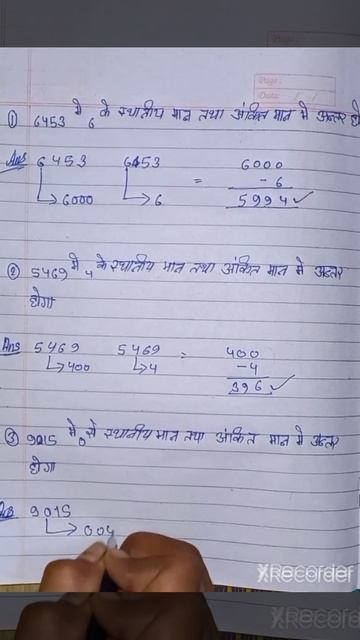 Page:
Date:
① 6453 में 6 के स्थानीय मान तथा अंकित मान में अन्तर हो
Ans 6453 6453 6000
→6000 →6 = - 6
5994 ✓
② 5469 में 4 के स्थानीय मान तथा अंकित मान मे अन्तर
होगा
Ans 5469 5469 = 400
→400 →4 -4
396 ✓
③ 9015 में 0 से स्थानीय मान तथा अंकित मान में अन्तर
होगा
Ans 9015
→ 00
XRecorder
XRecorder